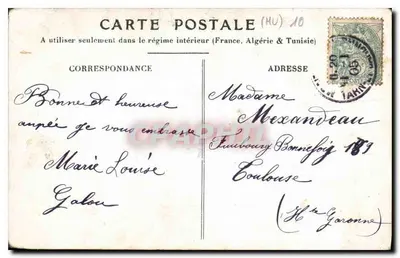 CARTE POSTALE
(MU) 10
A utiliser seulement dans le régime intérieur (France, Algérie & Tunisie)
CORRESPONDANCE
ADRESSE
Bonne et heureuse
année je vous embrasse
Marie Louise
Galou
Madame
Mexandeau
Faubourg Bonnefoy 169
Toulouse
(Hte Garonne)
TARN